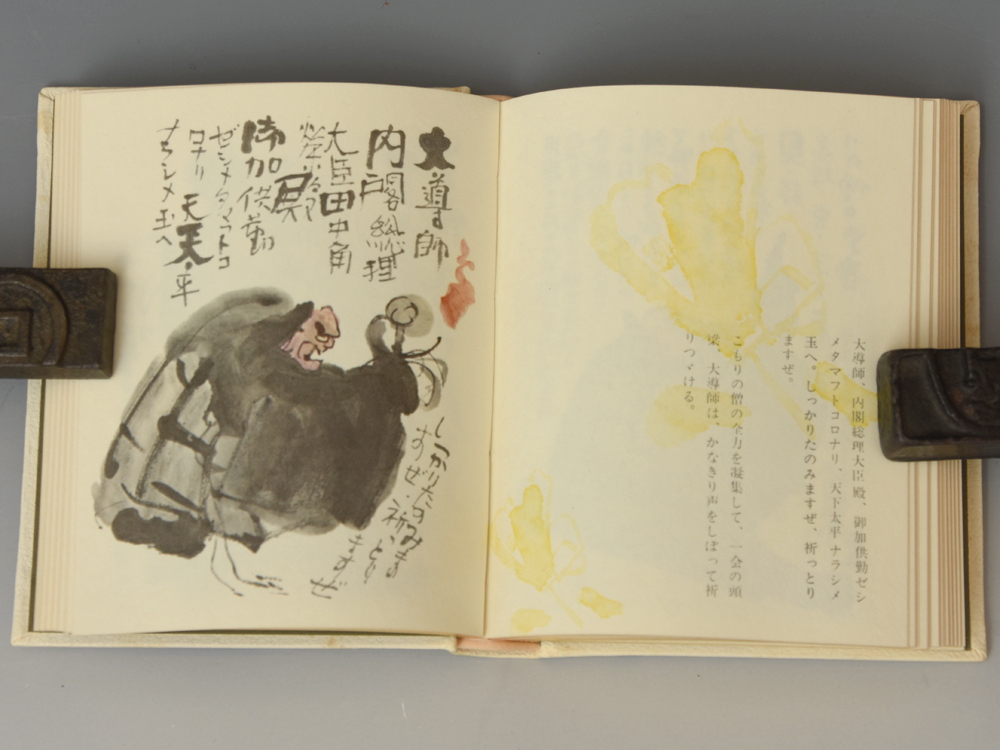 大導師、内閣総理大臣殿、御加供勤ゼシ
メタマフトコロナリ、天下太平ナラシメ
玉へ。しっかりたのみますぜ、祈っとり
ますぜ。
こもりの僧の全力を凝集して、一会の頭
梁、大導師は、かなきり声をしぼって祈
りつゞける。
大導師
内閣総理
大臣田中角
榮殿
御加供勤
ゼシメタマフトコ
ロナリ 天天平
ナラシメ玉へ
しっかりたのみま
すぜ・祈っとり
ますぜ